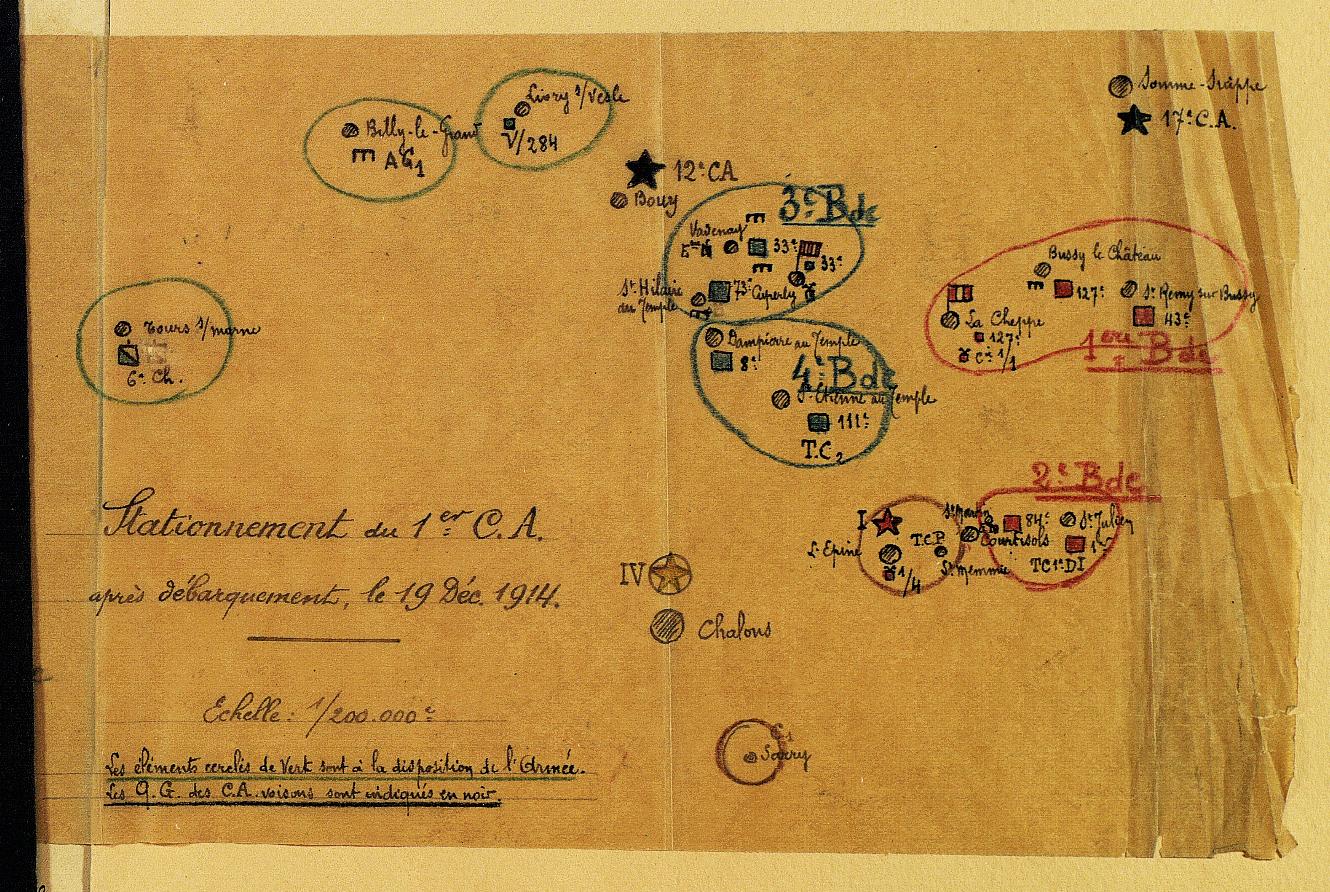 Livry s/Vesle
V/284
Billy-le-Grand
AG1
Somme-Tràppe
17e C.A.
12e CA
Bouy
3e Bde
Vadenay
33e
33e
73e
Cuperly
St Hilaire
du Temple
Bussy le Château
127e
St Remy sur Bussy
43e
La Cheppe
127e
Cie 1/1
1ère Bde
Tours s/marne
6e Ch.
Dampierre au Temple
8e
4e Bde
St Etienne au Temple
111e
T.C2
Stationnement du 1er C.A.
après débarquement, le 19 Déc. 1914.
2e Bde
I
L'Epine
T.C.P
1/4
St Memmie
84e
St Julien
Courtisols
1er
TC 1e DI
IV
Chalons
Echelle: 1/200.000e
Sarry
Les éléments cerclés de Vert sont à la disposition de l'Armée.
Les Q.G. des C.A. voisins sont indiqués en noir.